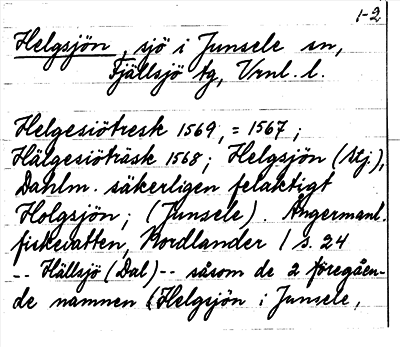 1-2
Helgsjön, sjö i Junsele sn,
Fjällsjö tg, Vrnl. l.
Helgesiötresk 1569, = 1567;
Hälgesiöträsk 1568; Helgsjön (Stj.),
Dahlm. säkerligen felaktigt
Holgsjön; (Junsele). Ångermanl.
fiskevatten, Nordlander / s. 24
-- Hällsjö (Dal) -- såsom de 2 föregåen-
de namnen (Helgsjön i Junsele,